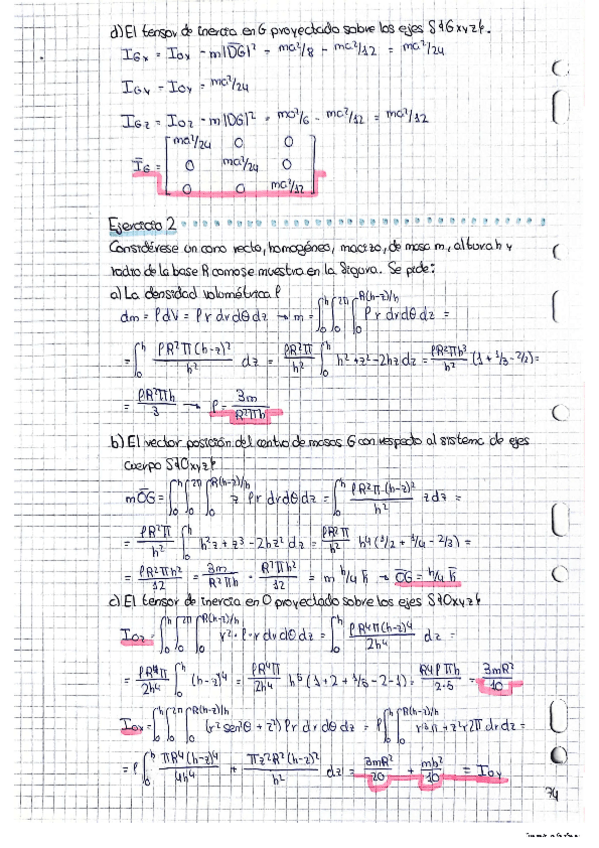 d) El tensor de inercia en G proyectado sobre los ejes S{Gxyz}.
I_Gx = I_Ox - m|OG|² = ma²/8 - ma²/12 = ma²/24
I_Gy = I_Gx = ma²/24
I_Gz = I_Oz - m|OG|² = ma²/6 - ma²/12 = ma²/12
I_G = [ma²/24 0 0
0 ma²/24 0
0 0 ma²/12]
Ejercicio 2
Considérese un cono recto, homogéneo, macizo, de masa m, altura h y
radio de la base R como se muestra en la figura. Se pide:
a) La densidad volumétrica ρ
dm = ρdV = ρ r dr dθ dz → m = ∫₀^h ∫₀^2π ∫₀^R(h-z)/h ρ r dr dθ dz =
= ∫₀^h ρR²π(h-z)²/h² dz = ρR²π/h² ∫₀^h h²+z²-2hz dz = ρR²πh³/h² (1 + 1/3 - 2/2) =
= ρR²πh/3 → ρ = 3m/R²πh
b) El vector posición del centro de masas G con respecto al sistema de ejes
cuerpo S{Oxyz}
mOG = ∫₀^h ∫₀^2π ∫₀^R(h-z)/h z ρ r dr dθ dz = ∫₀^h ρR²π(h-z)²/h² z dz =
= ρR²π/h² ∫₀^h h²z + z³ - 2hz² dz = ρR²π/h² h⁴ (1/2 + 1/4 - 2/3) =
= ρR²πh²/12 = 3m/R²πh · R²πh²/12 = m h/4 k → OG = h/4 k
c) El tensor de inercia en O proyectado sobre los ejes S{Oxyz}
I_Oz = ∫₀^h ∫₀^2π ∫₀^R(h-z)/h r² · ρ · r dr dθ dz = ∫₀^h ρR⁴π(h-z)⁴/2h⁴ dz =
= ρR⁴π/2h⁴ ∫₀^h (h-z)⁴ = ρR⁴π/2h⁴ h⁵ (1 + 2 + 1/5 - 2 - 1) = R⁴ρπh/2·5 = 3mR²/10
I_Ox = ∫₀^h ∫₀^2π ∫₀^R(h-z)/h (r² sen²θ + z²) ρ r dr dθ dz = ρ ∫₀^h ∫₀^R(h-z)/h r³π + z²r2π dr dz =
= ρ ∫₀^h πR⁴(h-z)⁴/4h⁴ + πz²R²(h-z)²/h² dz = 3mR²/20 + mh²/10 = I_Oy
74